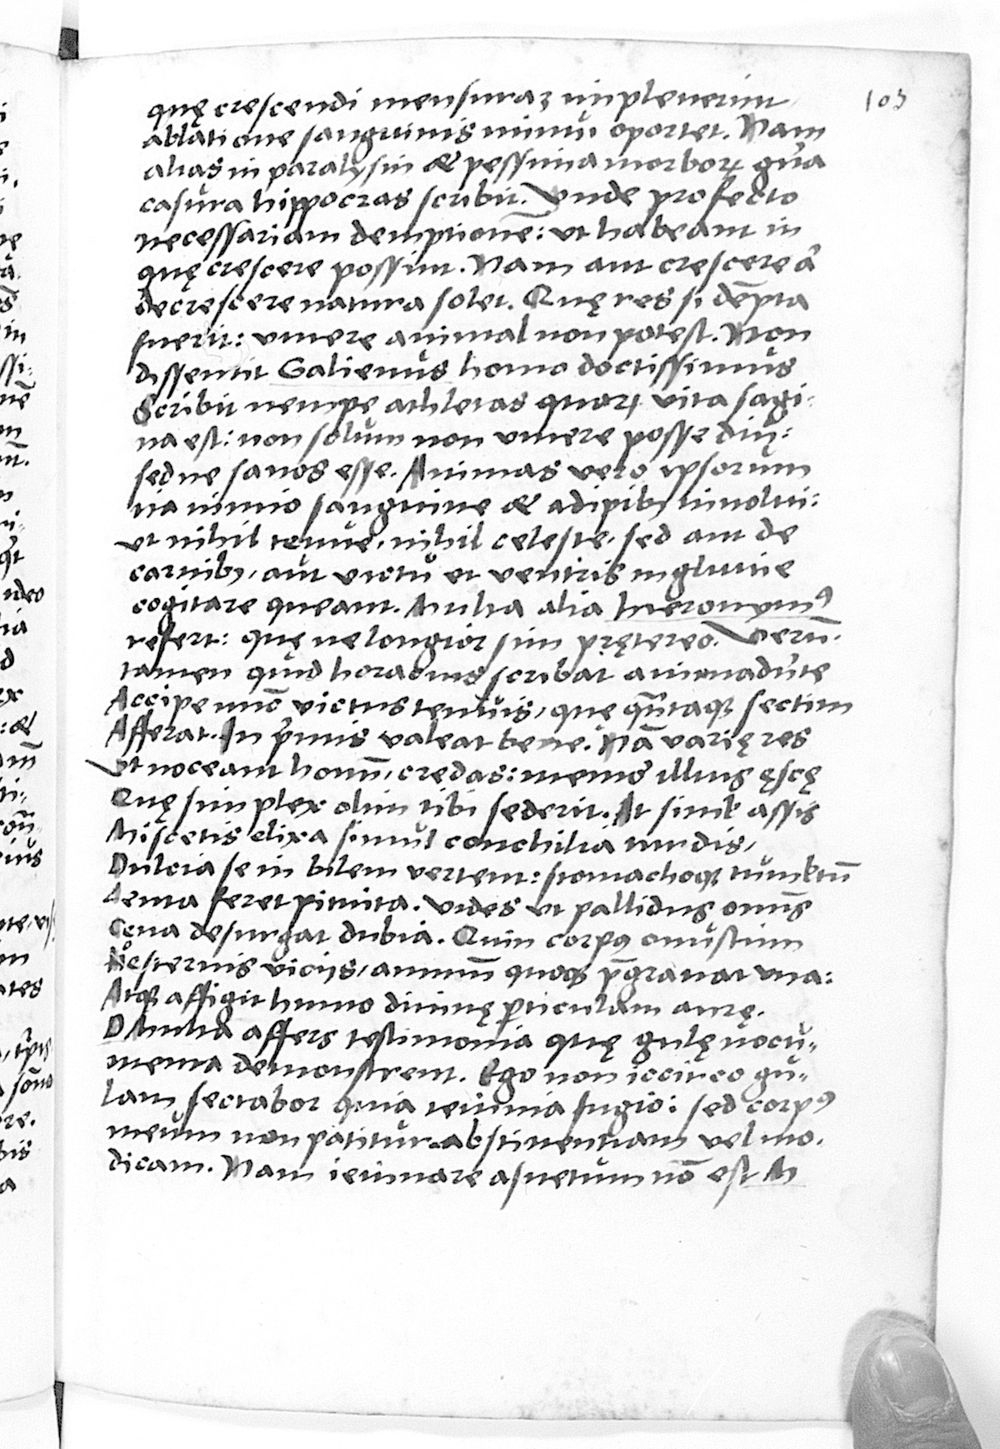 103
quę crescendi mensuraz impleuerint
ablatione sanguinis minui oportet. Nam
alias in paralysin & pessima morboꝝ gña
casura hippocras scribit. Vnde profecto
necessariam demptionē: ut habeant in
quę crescere possint. Nam aut crescere a͛
decrescere natura solet. Quę res si dēpta
fuerit: viuere animal non potest. Non
dissentit Galienus homo doctissimus
Scribit nempe athletas quoꝝ vita sagi-
na est: non solum non viuere posse diu:
sed ne sanos esse. Animas vero ipsorum
ita nimio sanguine & adipibꝫ inuolui:
vt nihil tenue, nihil celeste, sed aut de
carnibꝫ, aut victu et ventris ingluuie
cogitare queant. Multa alia hieronymꝰ
refert: quę ne longior sim prętereo. Verū-
tamen quid horatius scribat animadu͛te
Accipe nūc victus tenuis, que qñtaqꝫ sectim
Afferat. In pͥmis valeat bene. Nā varię res
Vt noceant homī, credas: memor illius ęscę
Quę simplex olim tibi sederit. At simͣl assis
Miscetis elixa simul conchilia turdis,
Dulcia se in bilem vertent: stomachoqꝫ tumltū
Lenta feret pituita. Vides vt pallidus omīs
Cena desurgat dubia. Quin corpꝰ onustum
Hesternis vicijs, animū quoqꝫ p̄grauat vna:
Atqꝫ affigit humo diuinę ꝑticulam aurę.
D Multa affers testimonia quę gulę nocu-
menta demonstrent. Ego non iccirco gu-
lam sectabor quia ieiunia fugio: sed corpꝰ
meum non patitur abstinentiam vel mo-
dicam. Nam ieiunare asuetum nō est M